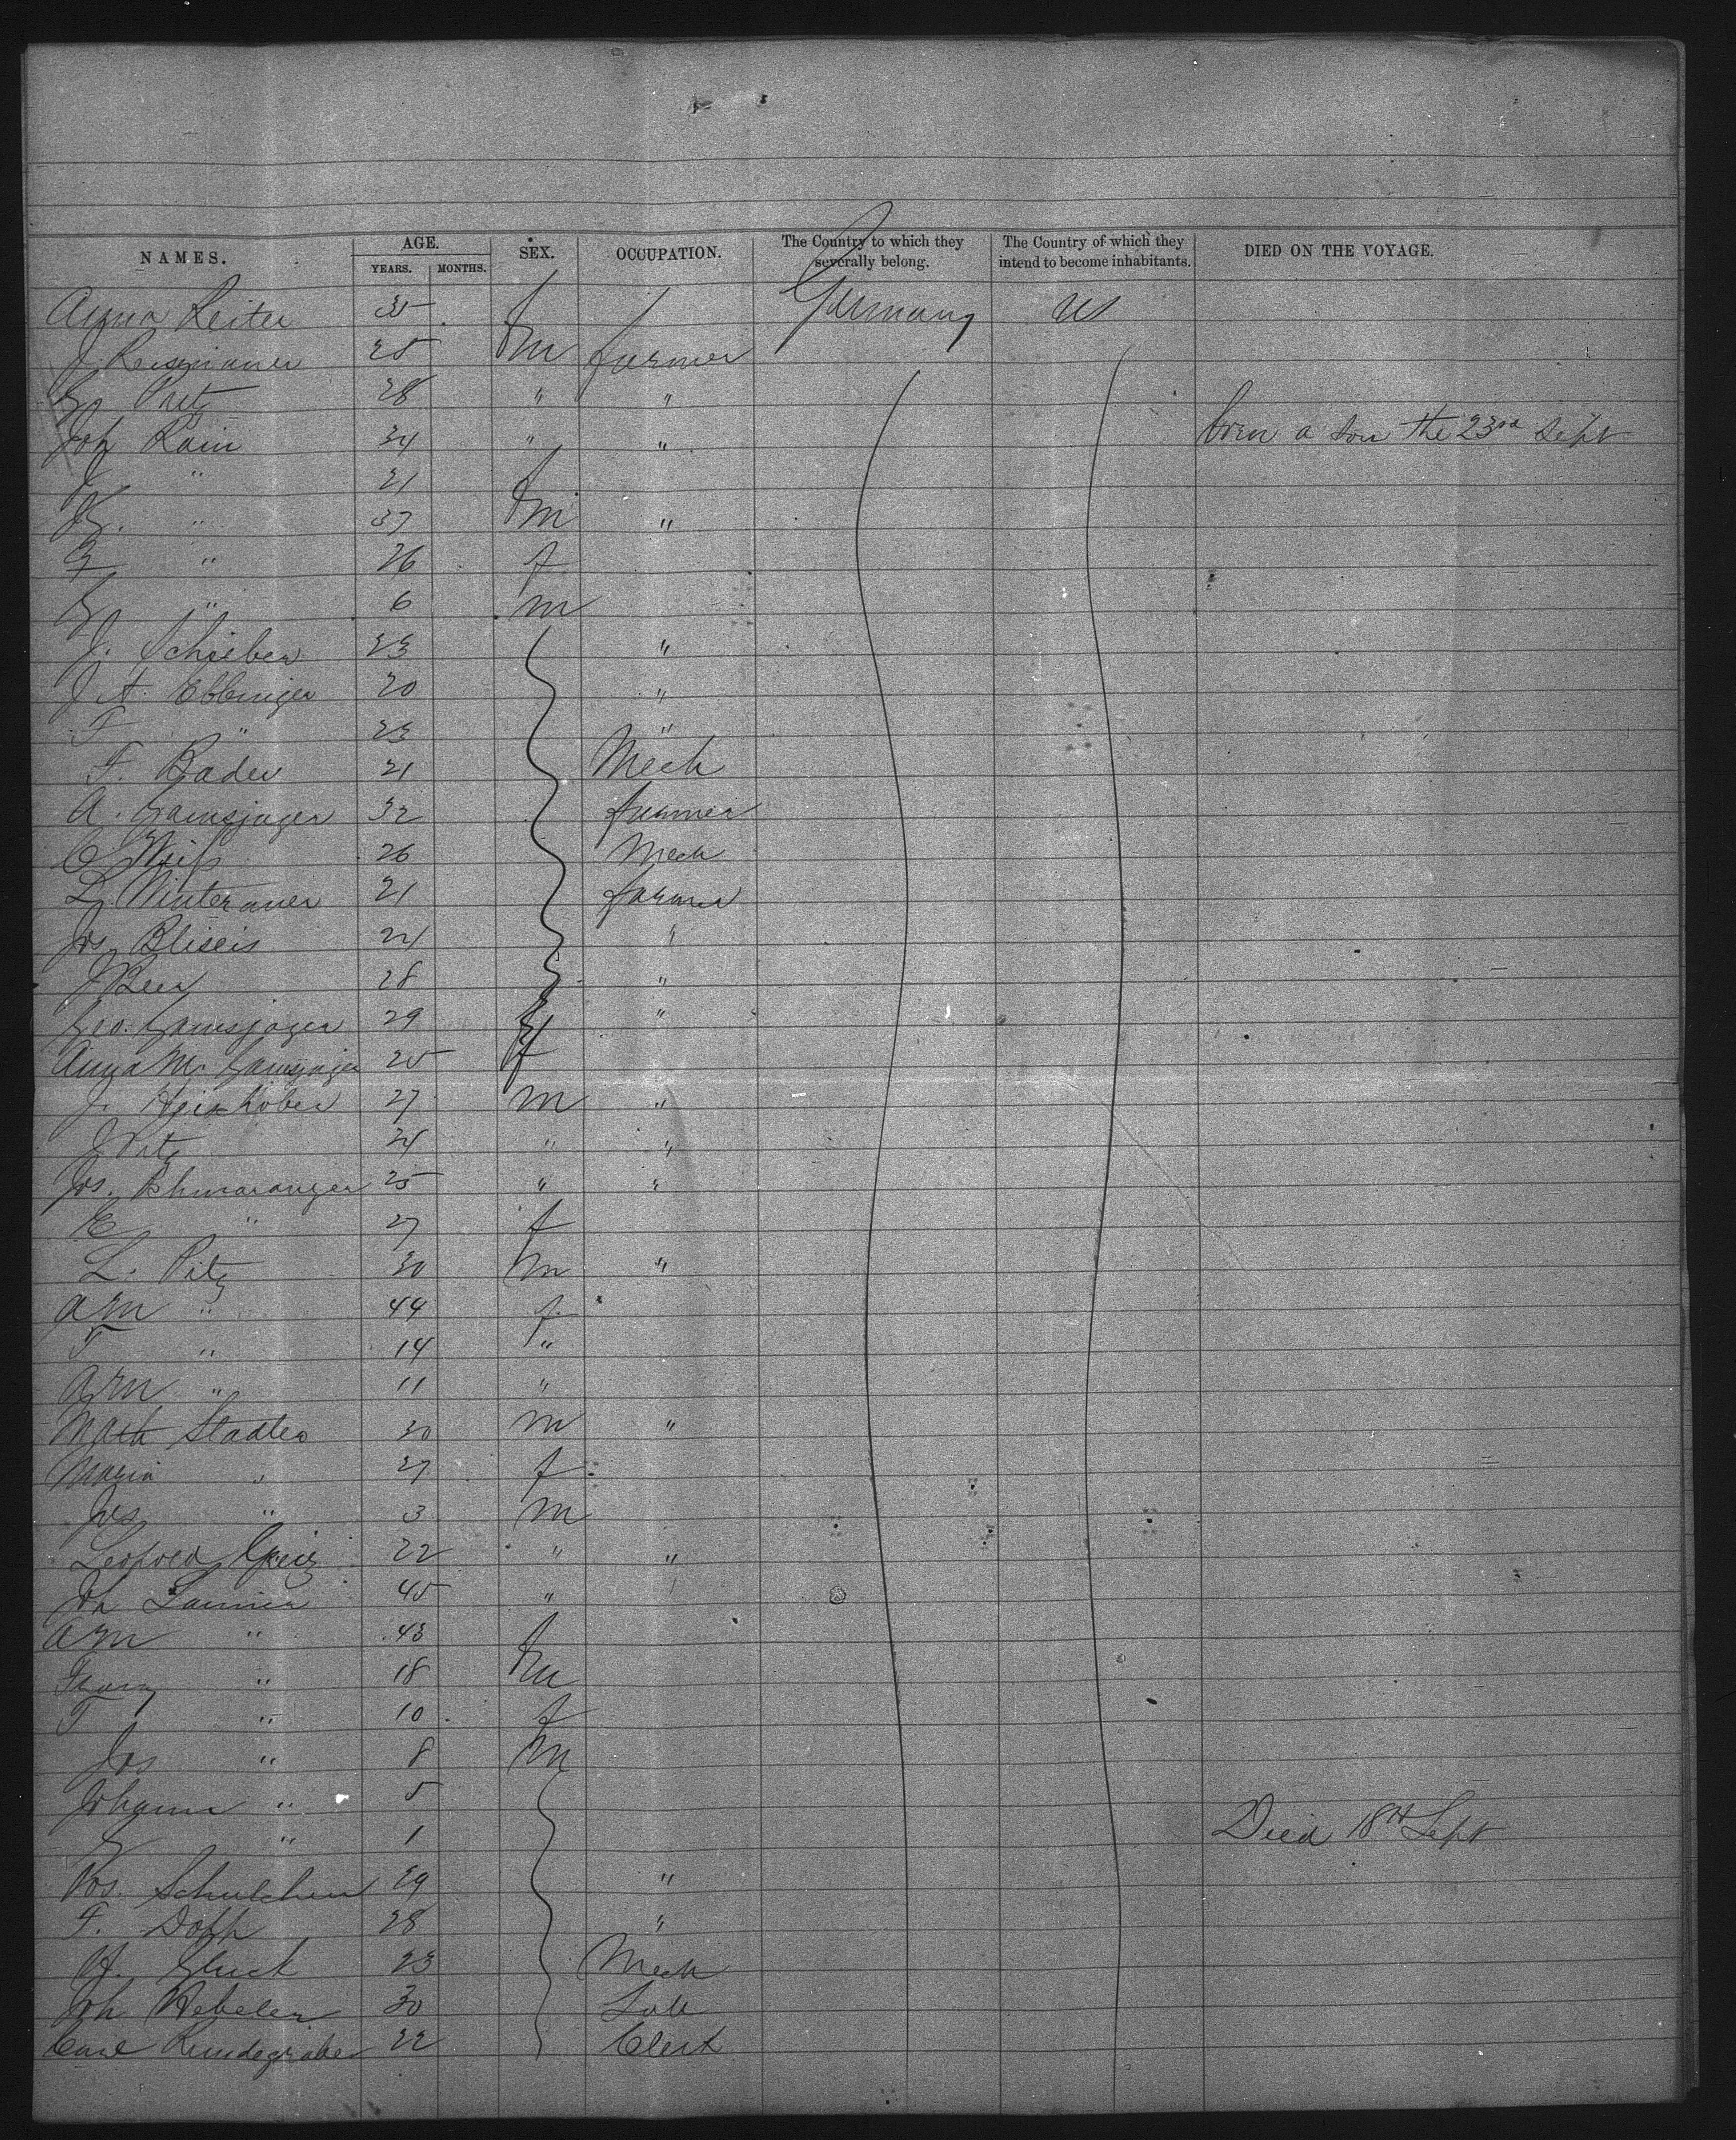 NAMES. AGE. YEARS. MONTHS. SEX. OCCUPATION. The Country to which they severally belong. The Country of which they intend to become inhabitants. DIED ON THE VOYAGE.
Anna Reiter 35 f Germany US
J. 25 m farmer
28 " "
Joh Rain 34 " " born a son the 23rd Sept
J. " 21 f
" 37 m "
" 26 f
" 6 m
J. Schieber 23 "
J A. Ebbinger 20 "
F " 23 "
F. Bader 21 Mech
A. Gamsjager 32 farmer
C Weiss 26 Mech
L. Winterauer 21 farmer
Jos Bliseis 24 "
J Beer 28 "
Geo. Gamsjager 29 "
Anna M. Gamsjager 25 f
J. 27 m "
J 24 " "
Jos. 25 " "
E " 27 f
L. Pilz 30 m "
A M " 44 f
T " 14 "
A M " 11 "
Math Stadler 30 m "
Maria " 27 f
Jos " 3 m
Leopold 22 " "
Joh 45 " "
A M " 43 f
Franz " 18 m
T " 10 f
Jos " 8 m
Johann " 5
" 1 Died 18th Sept
29 "
F. Dopp 28 "
H. Gluck 23 Mech
Joh Hebeler 30
Carl Rundegraber 22 Clerk